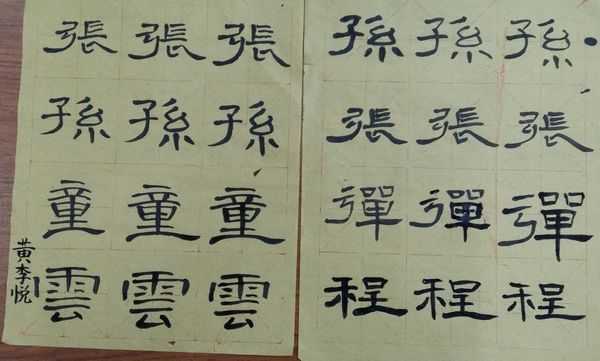 張張張
孫孫孫
童童童
雲雲雲
黃李悅
孫孫孫
張張張
彈彈彈
程程程